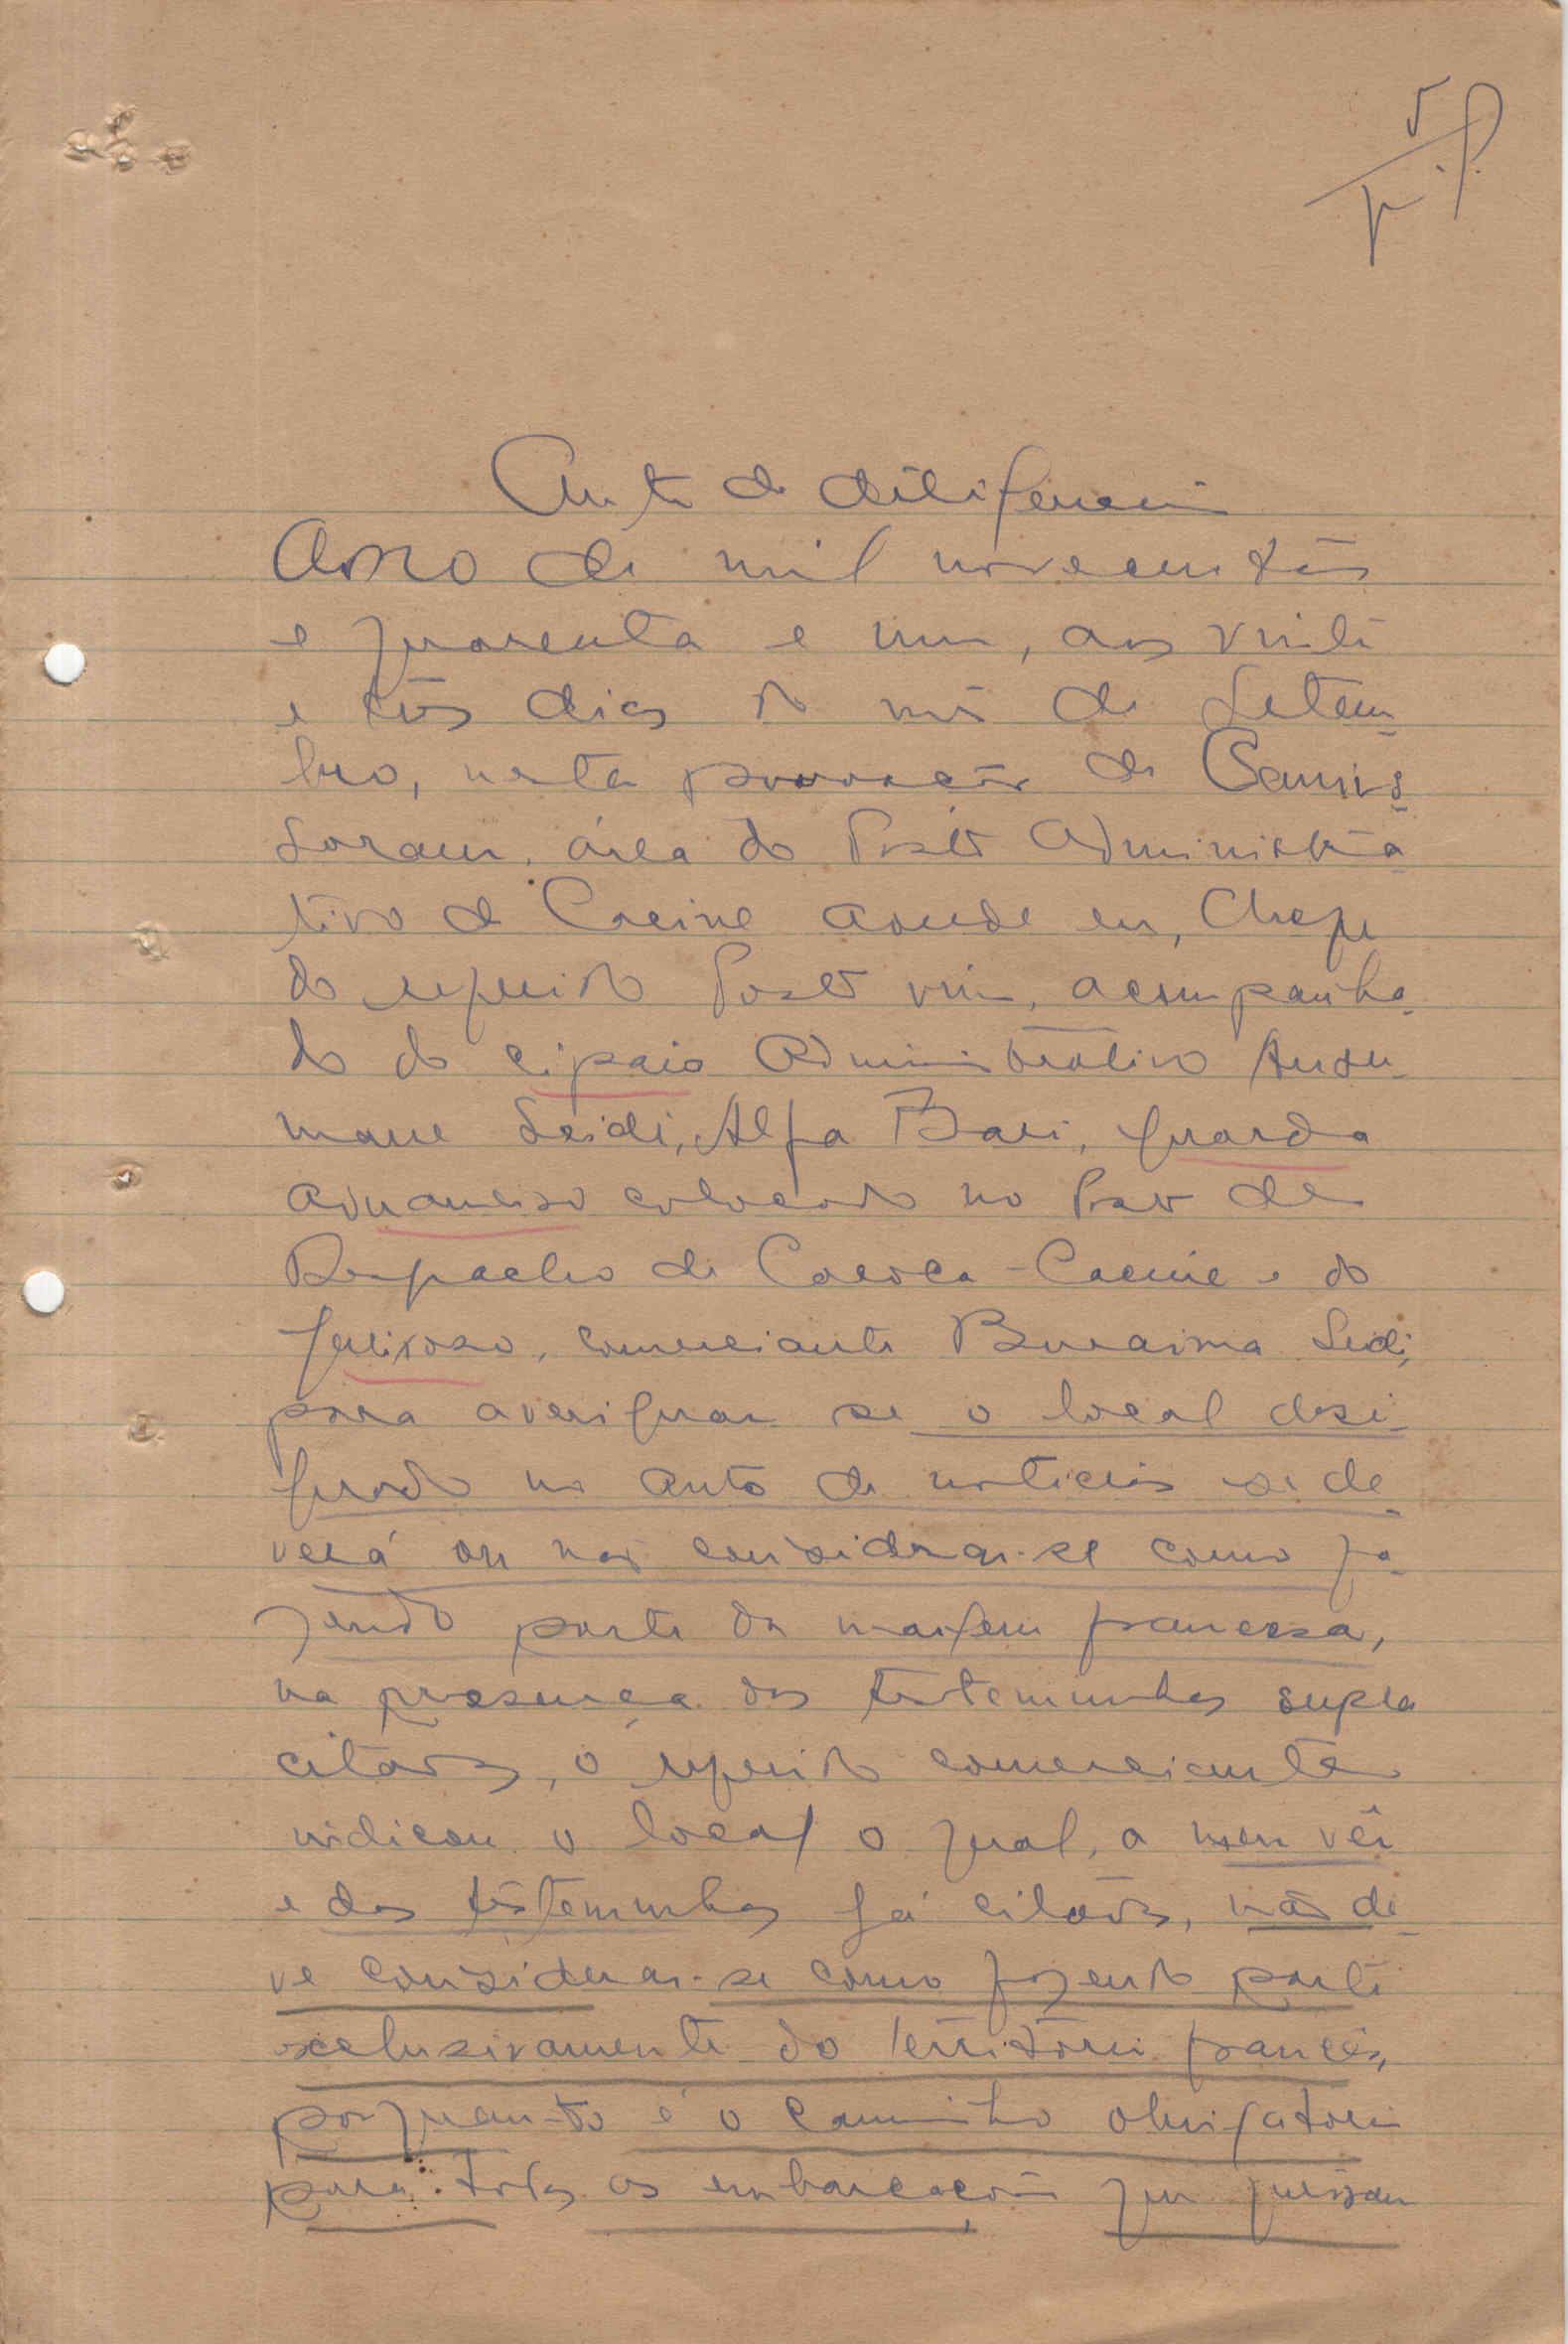 5
Auto de diligencia
Anno de mil novecentos
e quarenta e um, aos vinte
e três dias do mês de Setem-
bro, nesta povoação de
área do Posto Administra-
tivo de Cacine aonde eu, Chefe
do referido Posto vim, acompanha-
do do cipaio Administrativo Andu-
mane Seidi, Alfa Bari, guarda
aduaneiro colocado no Posto de
Despacho de Cacoca-Cacine e do
queixoso, comerciante Buraima Seidi,
para averiguar se o local desi-
gnado no auto de noticias se de-
verá ou não considerar-se como fa-
zendo parte da margem francesa,
na presença das testemunhas supra
citados, o referido comerciante
indicou o local o qual, a meu vêr
e das testemunhas já citados, não de-
ve considerar-se como fazendo parte
exclusivamente do território francês,
porquanto é o caminho obrigatório
para todas as embarcações que queiram